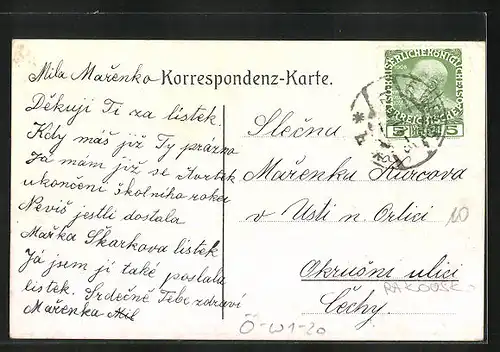 Mila Mařenko
Korrespondenz-Karte.
Děkuji Ti za lístek.
Kdy máš již Ty prázno
Já mám již se čtvrtek
ukončení školního roku
Nevíš jestli dostala
Mařka Škarkova lístek
Já jsem jí také poslala
lístek. Srdečně Tebe zdraví
Mařenka
Slečnu
Mařenku
v Usti n. Orlici
Okružní ulici
Čechy.
5 5
10
RAKOUSKO
Ö-W1-20